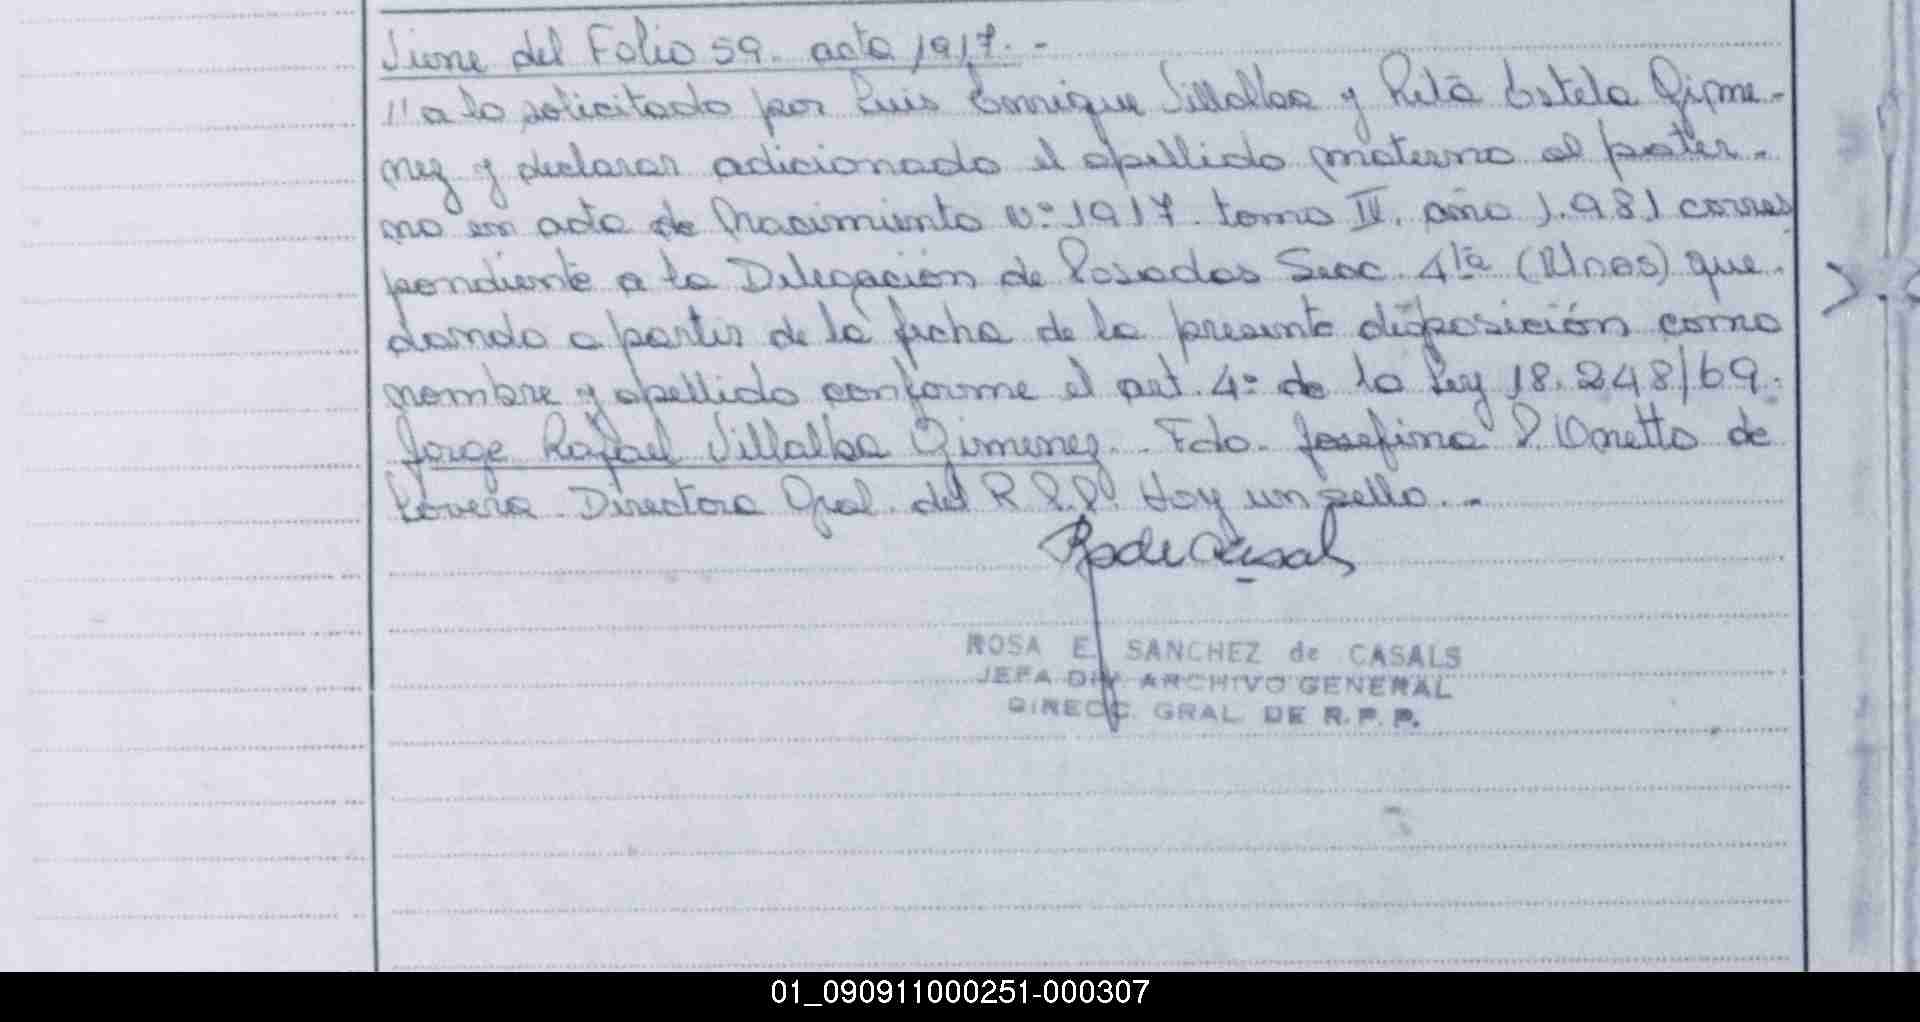 Viene del Folio 59. acta 1917. -
"a lo solicitado por Luis Enrique Villalba y Rita Estela Gime-
nez y declarar adicionado el apellido materno al pater-
no en acta de Nacimiento nº 1917. tomo IV. año 1.981 corres
pondiente a la Delegación de Posadas Secc. 4ta (Mnes) que-
dando a partir de la fecha de la presente disposición como
nombre y apellido conforme el art. 4º de la Ley 18.248/69.
Jorge Rafael Villalba Gimenez. Fdo. Josefina P. Onetto de
Lovera. Directora Gral. del R.P.P. Hay un sello. -
R S de Casals
ROSA E. SANCHEZ de CASALS
JEFA DIV. ARCHIVO GENERAL
DIRECC. GRAL. DE R.P.P.
01_090911000251-000307